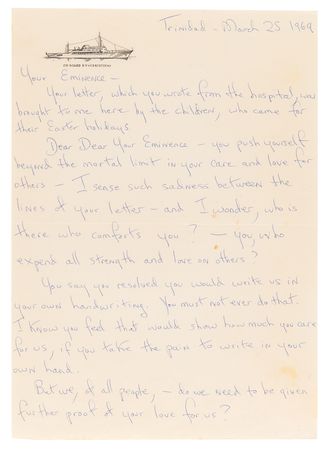 Trinidad - March 25 1969
ON BOARD R.Y. CHRISTINA
Your Eminence -
Your letter, which you wrote from the hospital, was
brought to me here by the children, who came for
their Easter holidays
Dear Dear Your Eminence - you push yourself
beyond the mortal limit in your care and love for
others - I sense such sadness between the
lines of your letter - and I wonder, who is
there who comforts you? - you, who
expend all strength and love on others?
You say you resolved you would write us in
your own handwriting. You must not ever do that.
I know you feel that would show how much you care
for us, if you take the pain to write in your
own hand.
But we, of all people, - do we need to be given
further proof of your love for us?